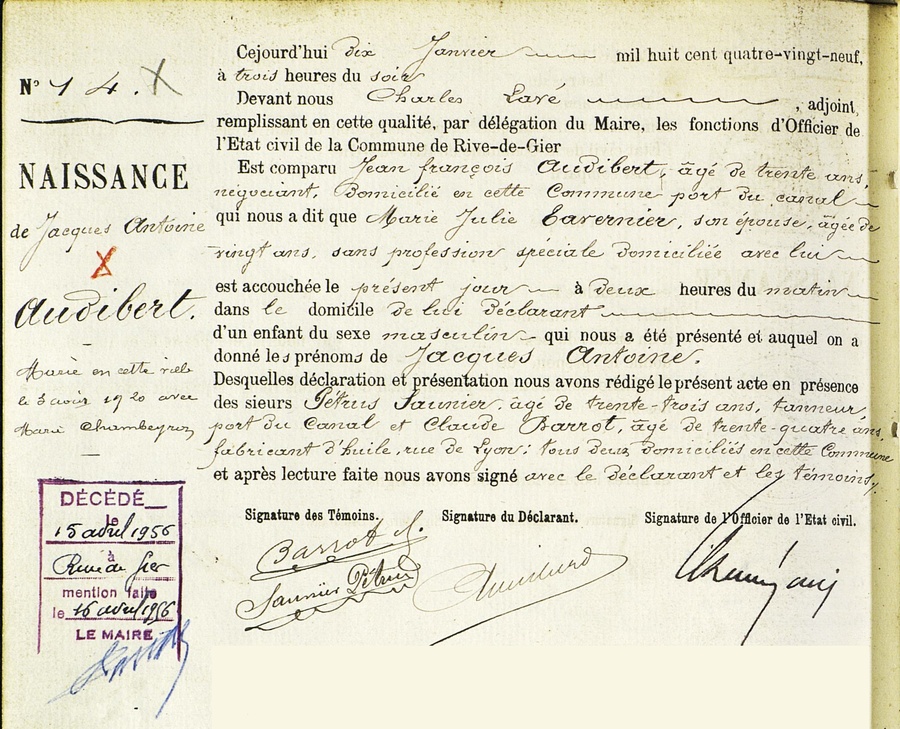 N° 14. X
NAISSANCE
de Jacques Antoine
Audibert.
Marié en cette ville
le 3 août 1920 avec
Marie Chambeyron
DÉCÉDÉ
le
15 avril 1956
à
Rive de Gier
mention faite
le 16 avril 1956
LE MAIRE
Cejourd'hui dix Janvier mil huit cent quatre-vingt-neuf,
à trois heures du soir
Devant nous Charles Lavé , adjoint,
remplissant en cette qualité, par délégation du Maire, les fonctions d'Officier de
l'Etat civil de la Commune de Rive-de-Gier
Est comparu Jean françois Audibert, âgé de trente ans,
négociant, Domicilié en cette Commune port du canal
qui nous a dit que Marie Julie Tavernier, son épouse, âgée de
vingt ans, sans profession spéciale domiciliée avec lui
est accouchée le présent jour à deux heures du matin
dans le domicile de lui déclarant
d'un enfant du sexe masculin qui nous a été présenté et auquel on a
donné les prénoms de Jacques Antoine.
Desquelles déclaration et présentation nous avons rédigé le présent acte en présence
des sieurs Pétrus Saunier, âgé de trente-trois ans, tanneur,
port du Canal et Claude Barrot, âgé de trente-quatre ans,
fabricant d'huile, rue de Lyon; tous deux domiciliés en cette Commune
et après lecture faite nous avons signé avec le déclarant et les témoins.
Signature des Témoins. Signature du Déclarant. Signature de l'Officier de l'Etat civil.
Barrot
Saunier Pétrus